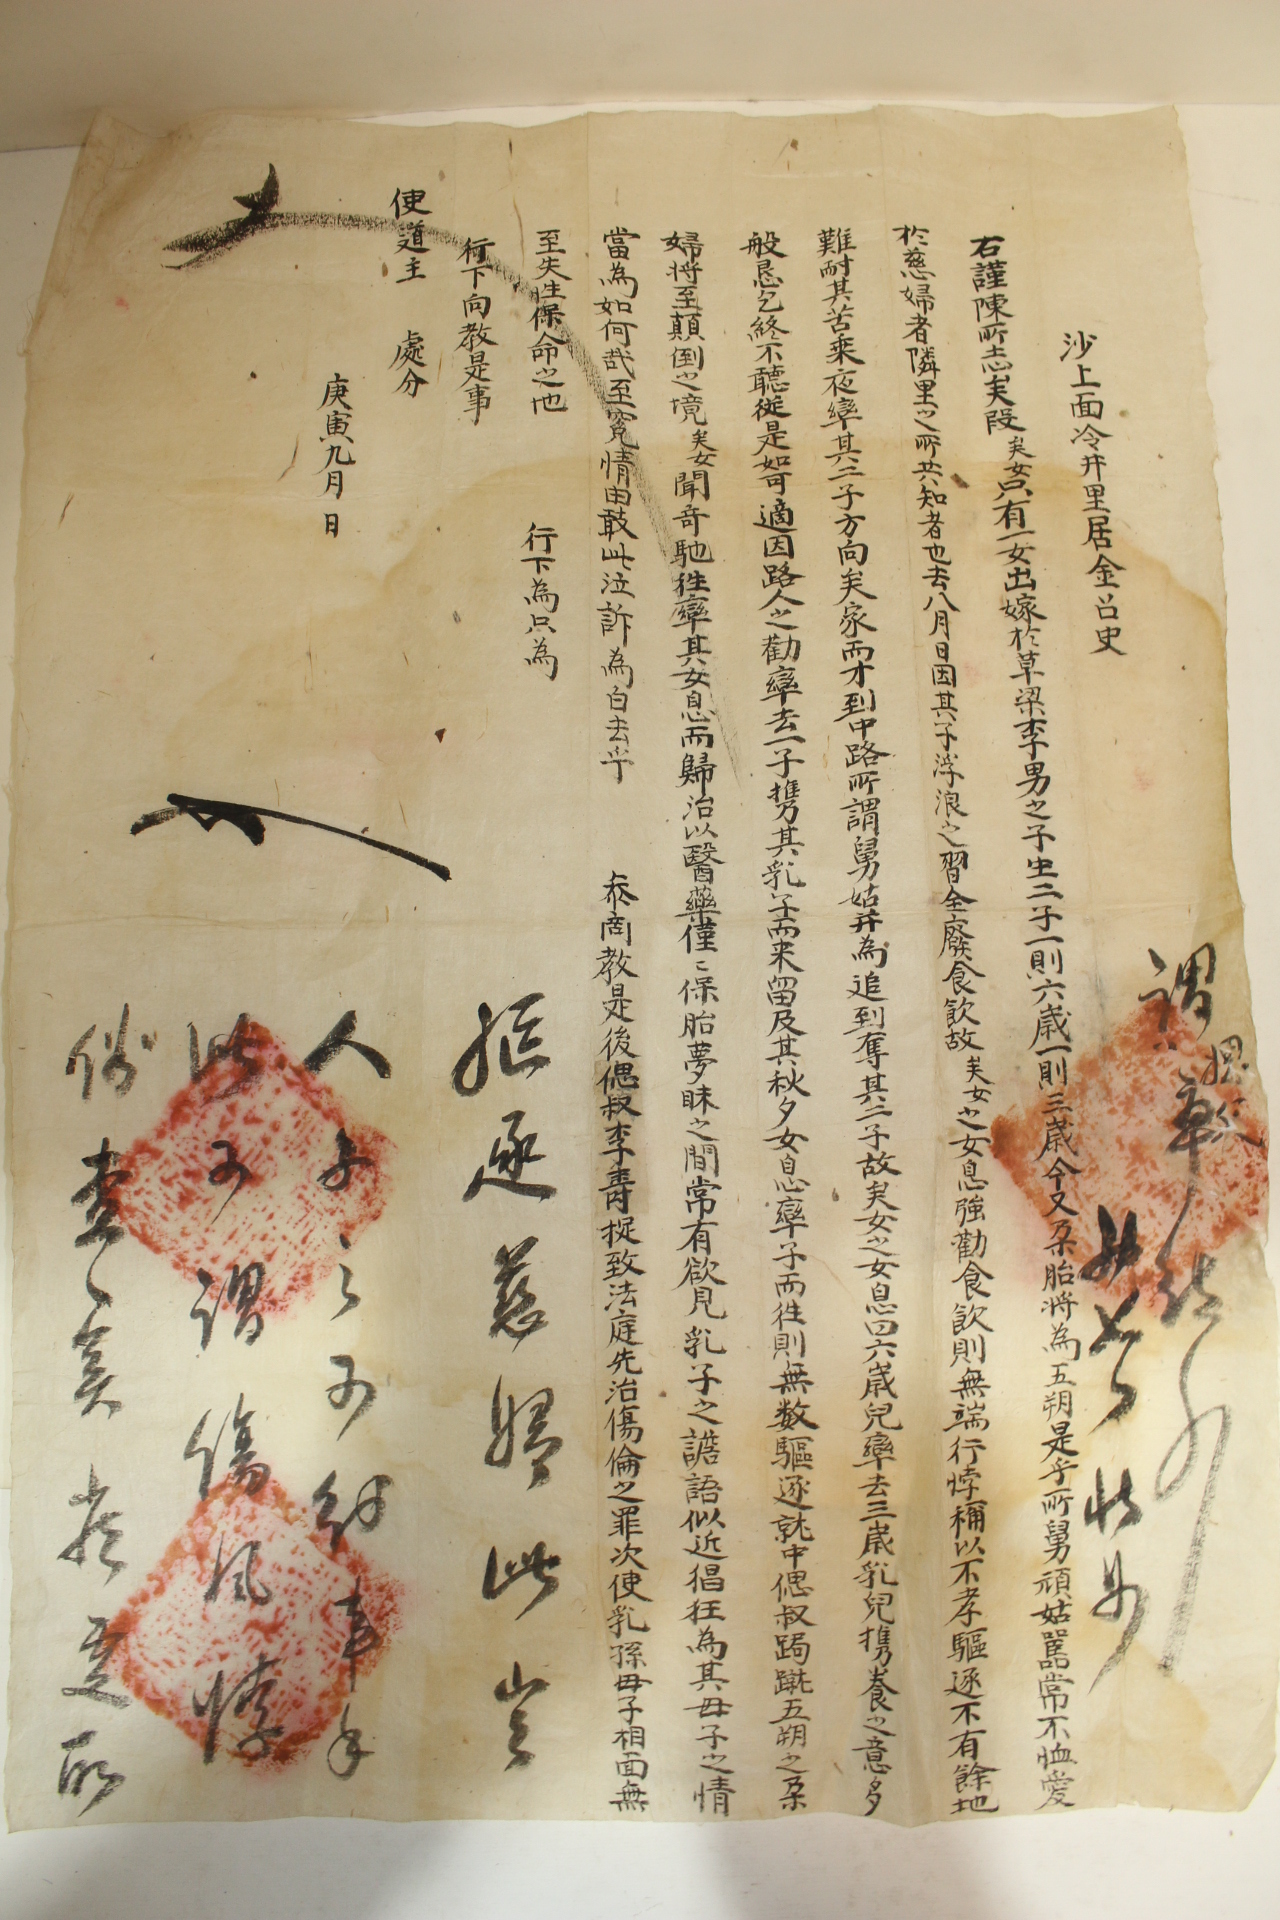 沙上面冷井里居金召史
右謹陳所志矣段矣女只有一女出嫁於草梁李男之子生二子一則六歲一則三歲今又孕胎將為五朔是乎所舅頑姑嚚常不恤愛
於慈婦者隣里之所共知者也去八月日因其子浮浪之習全廢食飮故矣女之女息強勸食飮則無端行悖稱以不孝驅逐不有餘地
難耐其苦乘夜率其二子方向矣家而才到中路所謂舅姑并為追到奪其二子故矣女之女息曰六歲兒率去三歲乳兒携養之意多
般恳乞終不聽從是如可適因路人之勸率去一子携其乳子而来留及其秋夕女息率子而徃則無数驅逐就中偲叔踢蹴五朔之孕
婦將至顛倒之境矣女聞奇馳徃率其女息而歸治以醫藥僅〻保胎夢昧之間常有欲見乳子之譫語似近猖狂為其母子之情
當為如何哉至寃情由敢此泣訴為白去乎 叅商教是後偲叔李青捉致法庭先治傷倫之罪次使乳孫母子相面無
至失性保命之地 行下為只為
行下向教是事
使道主 處分
庚寅九月日
驅逐慈婦此豈
人子之可忍事乎
此可謂傷風悖
俗 査實 嚴